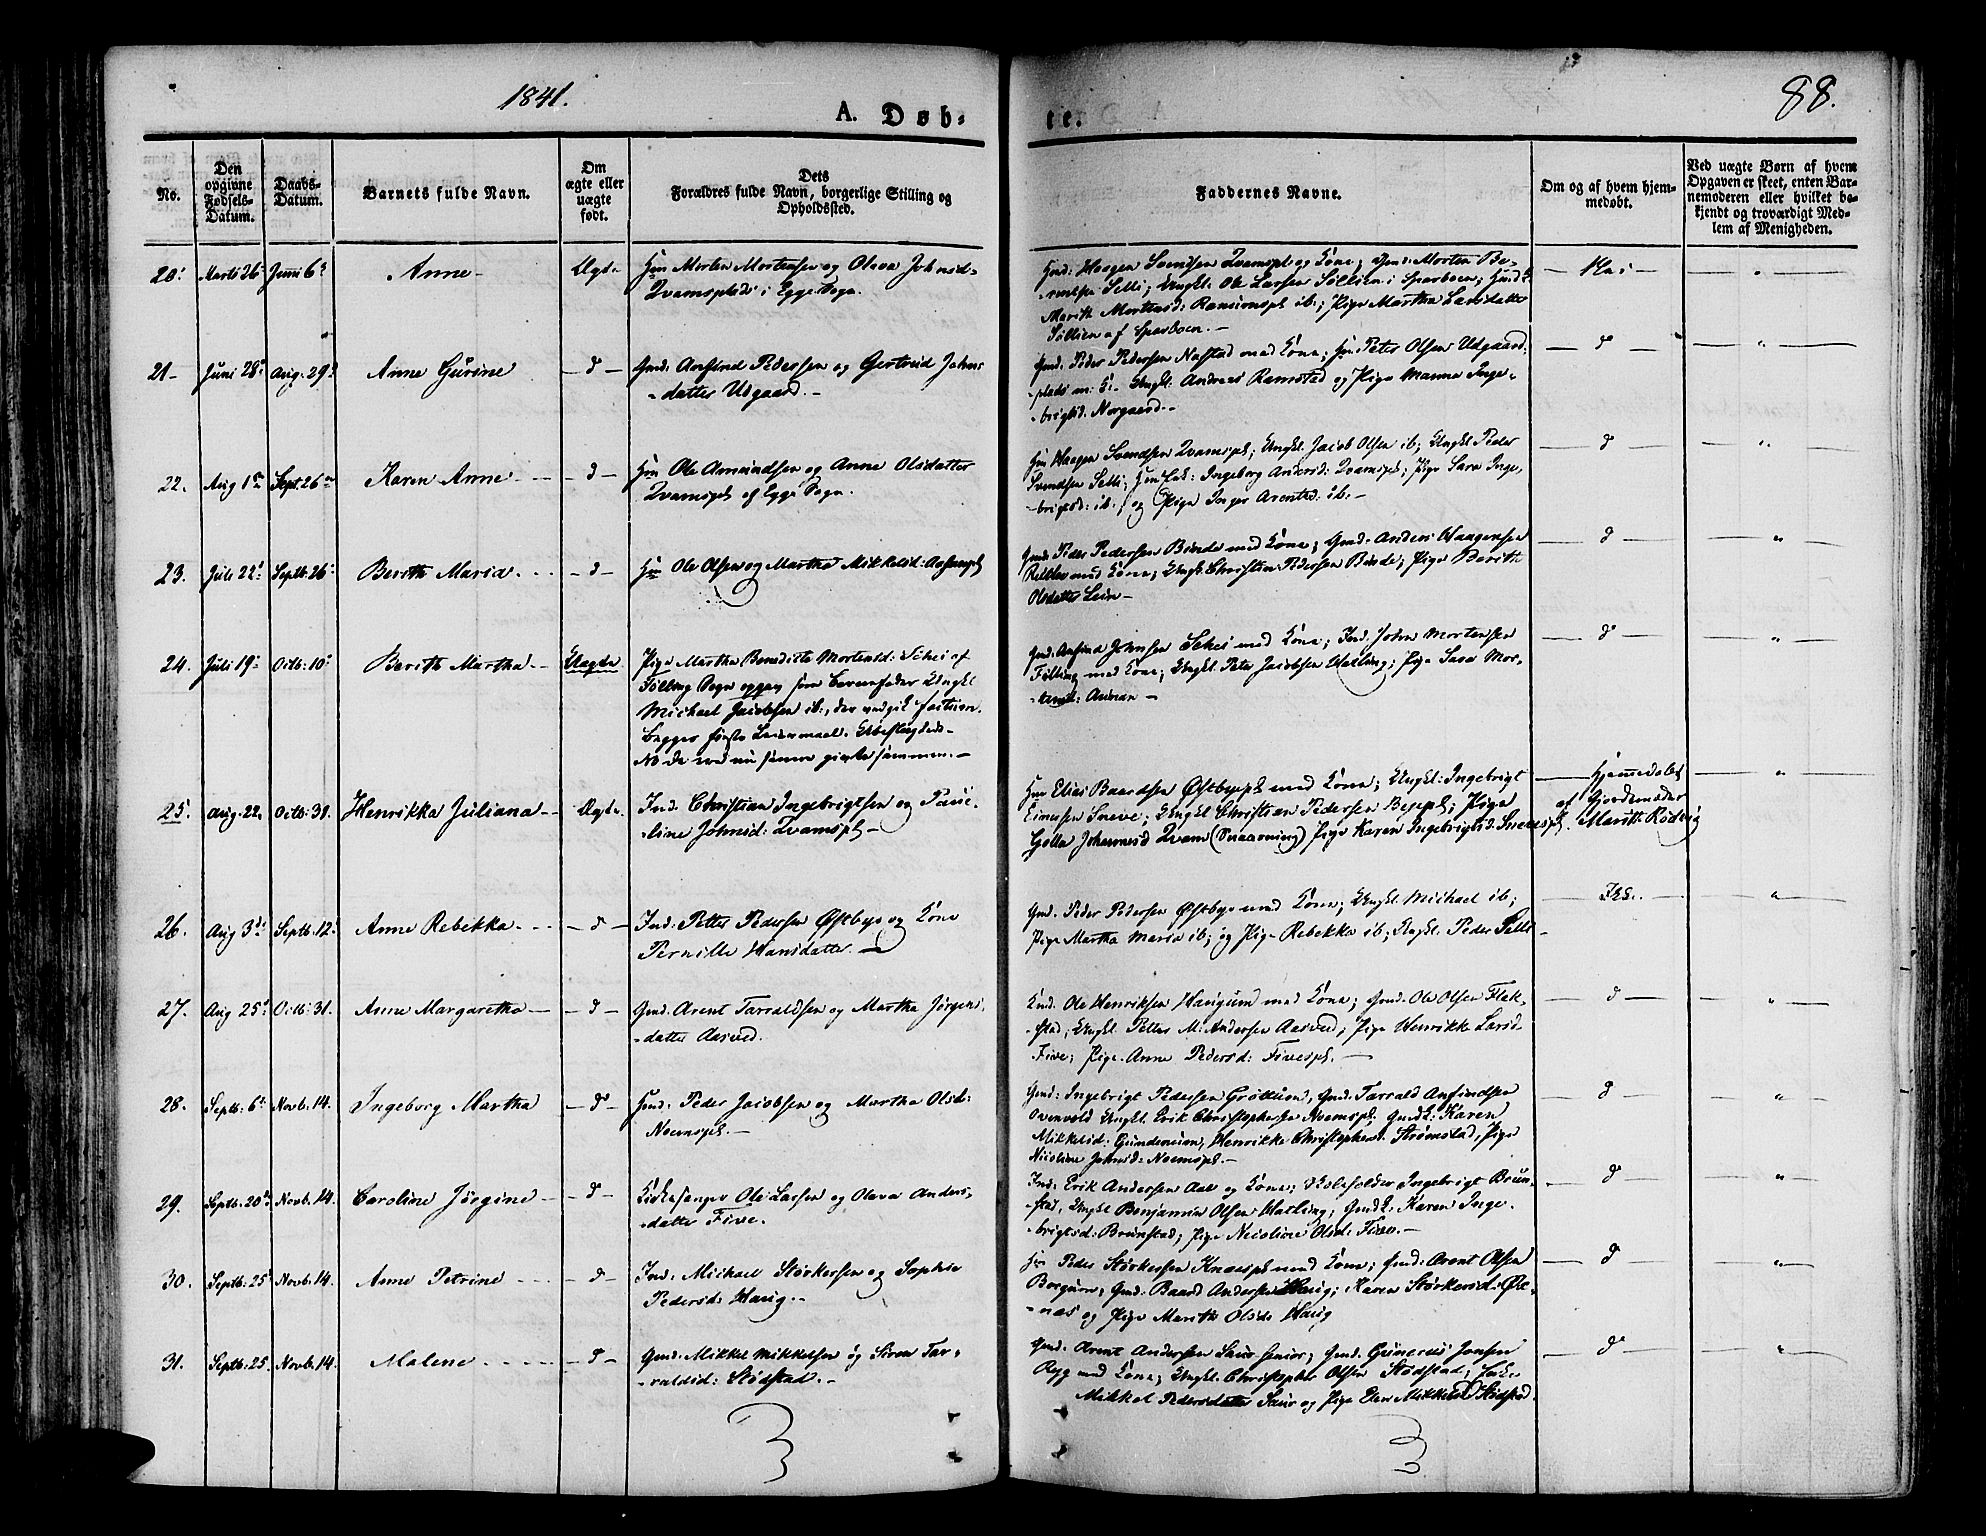 1841.
A. Døb-
te.
88.
No.
Den
opgivne
Fødsels-
Datum.
Daabs-
Datum.
Barnets fulde Navn.
Om
ægte eller
uægte
født.
Dets
Forældres fulde Navn, borgerlige Stilling og
Opholdssted.
Faddernes Navne.
Om og af hvem hjem-
medøbt.
Ved uægte Børn af hvem
Opgaven er skeet, enten Bar-
nemoderen eller hvilket be-
kjendt og troværdigt Med-
lem af Menigheden.
20. Marts 26 Juni 6 Anne Ægte Morten Mortensen og Olava Johnsd-
Qvamsplads i Egge Sogn.
Haagen Svendsen Qvamspl og Kone; Gmd: Morten Be-
-rentsen Selli; Ungkl. Ole Larsen Søllien i Sparboen;
Marith Mortensd: ib; Pige Martha Larsdatter
Søllien af Sparboen.
Nei
21 Juni 28 Aug. 29 Anne Gurine d Gmd: Anfind Pedersen og Gertrud Johns
-datter Udgaard.
Gmd: Peder Pedersen Nafstad med Kone; Peter Olsen Udgaard:
plads m: K: Ungkl: Andreas Ramstad og Pige Manna Inge-
-brigtsd. Norgaard.
d
22. Aug 1 Sept. 26 Karen Anne d Ole Amundsen og Anne Olsdatter
Qvamspl af Egge Sogn.
Haagen Svendsen Qvamspl; Ungkl. Jacob Olsen ib; Ungkl Peder
Svendsen Selli; Ingeborg Andersd: Qvamspl; Pige Sara Inge-
brigtsd: ib. og Pige Inger Arentsd: ib.
d
23. Juli 22 Septb. 26 Berith Maria d Ole Olsen og Martha Mikkelsd:
Gmd: Peder Pedersen Binde med Kone; Gmd: Anders Haagensen
med Kone; Ungkl. Christian Pedersen Binde; Pige Berith
Olsdatter Lein
d
24. Juli 19 Octb: 10 Berith Martha Uægte Pige Martha Benedicte Mortensd: Schei af
Følling Sogn opgav som Barnefader Ungkl
Michael Jacobsen ib:, der vedgik factum.
Begges første Leiermaal.
NB De ere nu sammen.
Gmd. Anfind Johnsen Schei med Kone; Ind. John Mortensen
Følling med Kone; Ungkl. Peter Jacobsen Hatling; Pige Sara Mor-
-tensd: Annan
d
25. Aug. 22. Octb: 31. Henrikka Juliana Ægte Ind. Christian Ingebrigtsen og Paue-
-line Johnsd: Qvamspl
Elias Baardsen Østbyepl med Kone; Ungkl: Ingebrigt
Eimersen Sneve; Ungkl Christian Pedersen; Pige
Golla Johannesd Qvam Pige Karen Ingebrigtsd. Snevespl.
Hjemmedøbt
af Gjordemoder
Maritt Røding
26. Aug 3 Septb. 12 Anne Rebekka d Ind: Petter Pedersen Østbye og Kone
Pernille Hansdatter.
Gmd. Peder Pedersen Østbye med Kone; Ungkl. Michael ib;
Pige Martha Maria ib; og Pige Rebekka ib; Ungkl. Peder Selli
27. Aug 25 Octb: 31. Anne Margaretha d Gmd: Arent Tarraldsen og Martha Jørgens
-datter Aasved.
Ole Henriksen Haugum med Kone; Gmd: Ole Olsen Flek-
-stad; Ungkl. Petter M: Andersen Aasved; Pige Henrikke Larsd-
Five; Pige Anne Pedersd: Fivespl.
d
28. Septb. 6 Novb. 14. Ingeborg Martha d Peder Jacobsen og Martha Olsd:
Noemspl.
Gmd: Ingebrigt Pedersen Grøttum, Gmd: Tarrald Anfindsen
Ovenvold Ungkl. Erik Christophersen Noemspl; Karen
Mikkelsd: Henrikke Christophersd. Strømstad, Pige
Nicoline Johnsd: Noemspl.
d
29. Septb. 20 Novb. 14. Caroline Jørgine d Kirkesanger Ole Larsen og Olava Anders-
-datter Five.
Ind: Erik Andersen Aal og Kone; Skoleholder Ingebrigt Brun-
-stad, Ungkl Benjamin Olsen Hatling; Karen Inge-
-brigtsd: Brunstad; Pige Nicoline Olsd: Five.
d
30. Septb. 25 Novb. 14. Anne Petrine d Ind: Michael Størkersen og Sophie
Pedersd: Haug.
Peder Størkersen med Kone; Gmd: Arent Olsen
Borgum; Gmd: Baard Andersen Haug; Karen Størkersd:
-næs og Pige Marith Olsd: Haug
d
31. Septb: 25. Novb. 14. Malene d Gmd: Mikkel Mikkelsen og Siren Tar-
-raldsd: Stødstad.
Gmd: Arent Andersen Saur Gmd: Gunerius Jonsen
Rygg med Kone; Ungkl. Christopher Olsen Stødstad;
Mikkel Pedersdatter Saur og Pige Elen Stødstad
d